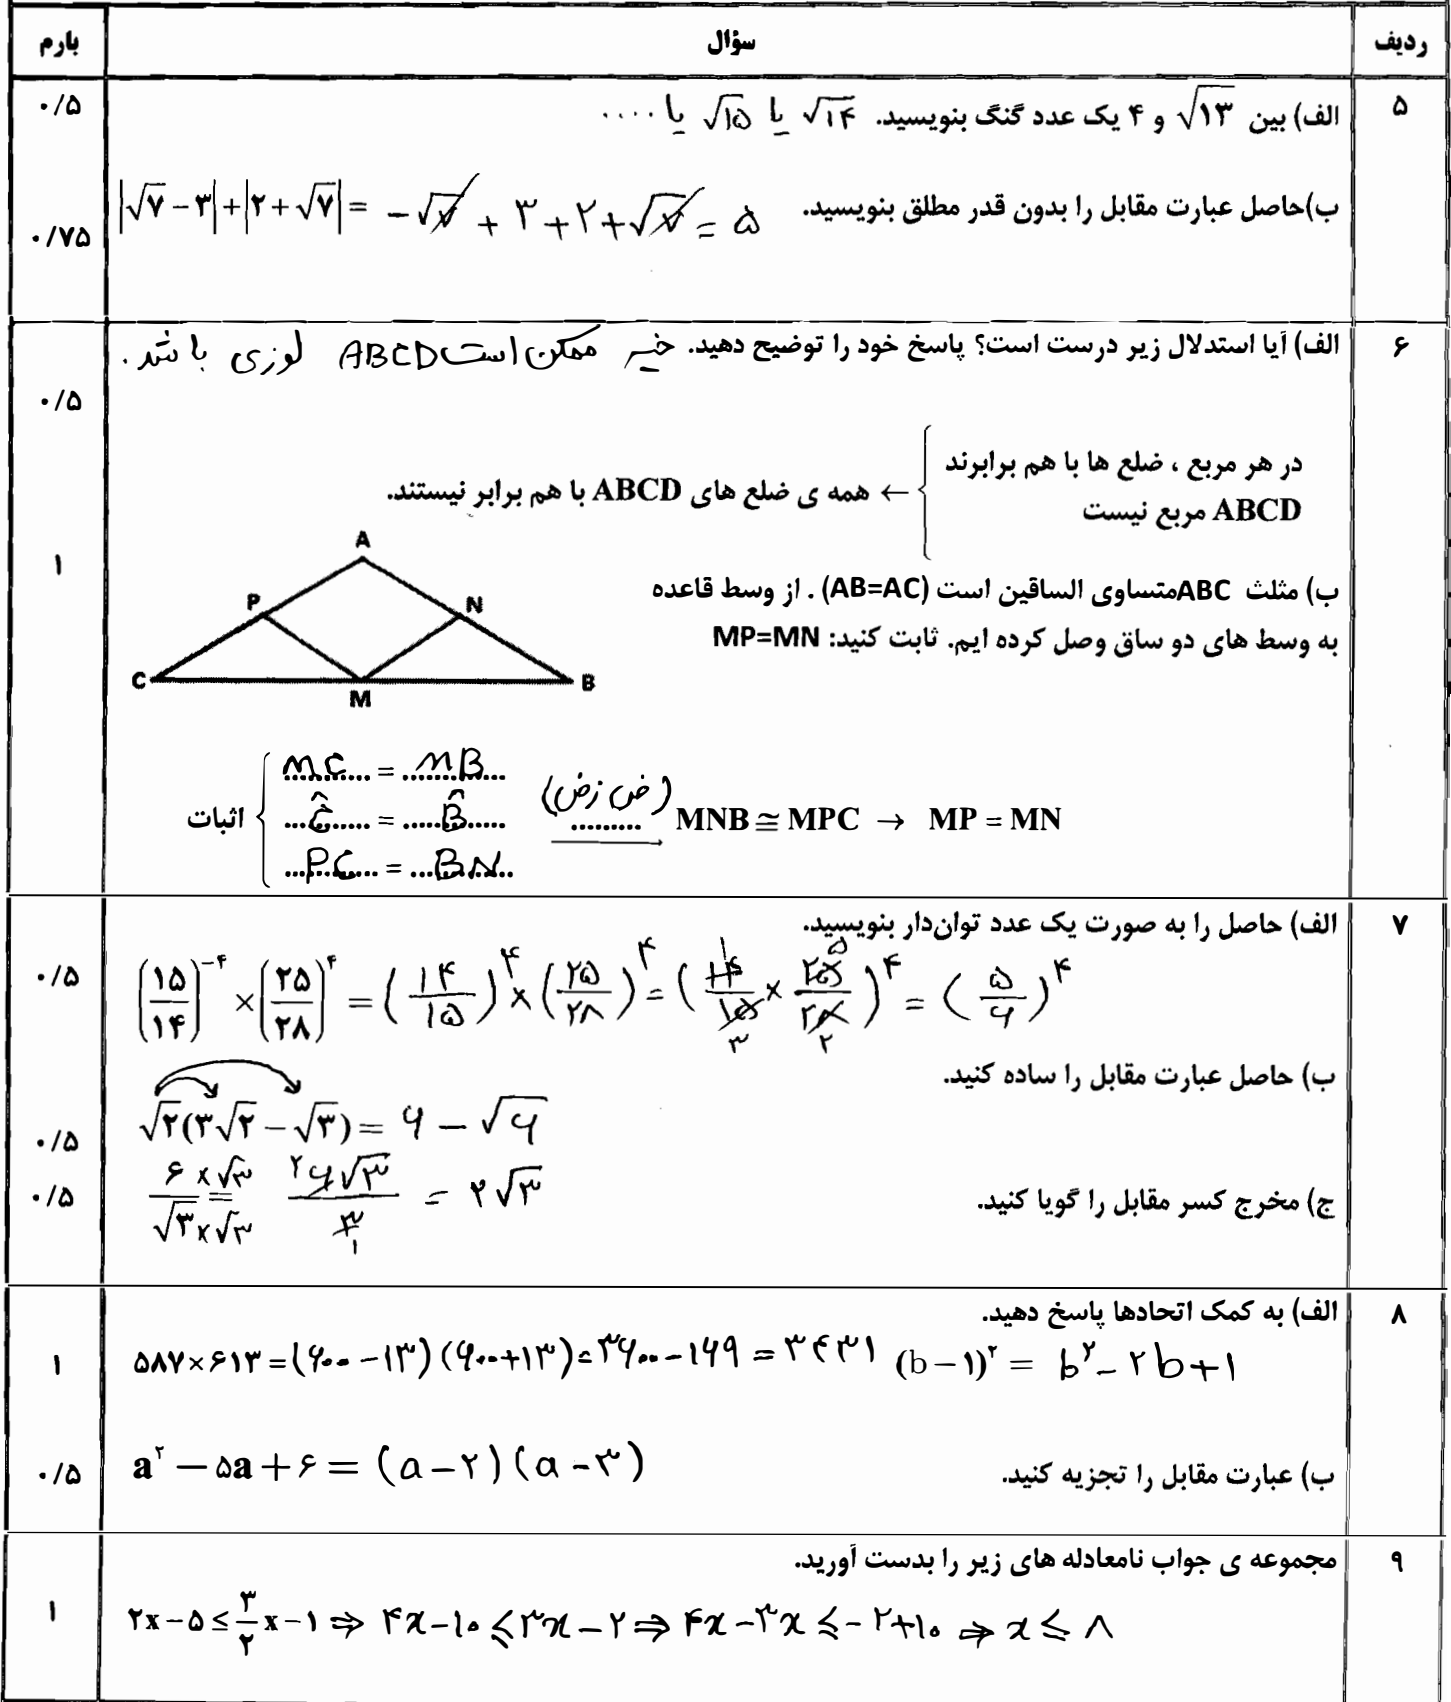 ردیف سؤال بارم
۵ الف) بین √۱۳ و ۴ یک عدد گنگ بنویسید. √۱۴ یا √۱۵ یا .... ۰/۵
ب)حاصل عبارت مقابل را بدون قدر مطلق بنویسید. |√۷ − ۳| + |۲ + √۷| = −√۷ + ۳ + ۲ + √۷ = ۵ ۰/۷۵
۶ الف) آیا استدلال زیر درست است؟ پاسخ خود را توضیح دهید. خیر ممکن است ABCD لوزی باشد. ۰/۵
در هر مربع ، ضلع ها با هم برابرند
ABCD مربع نیست
← همه ی ضلع های ABCD با هم برابر نیستند.
ب) مثلث ABC متساوی الساقین است (AB=AC) . از وسط قاعده ۱
به وسط های دو ساق وصل کرده ایم. ثابت کنید: MP=MN
A
P N
C M B
MC = MB
اثبات Ĉ = B̂ (ض ز ض) MNB ≅ MPC → MP = MN
PC = BN
۷ الف) حاصل را به صورت یک عدد توان‌دار بنویسید.
(۱۵/۱۴)^−۴ × (۲۵/۲۸)^۴ = (۱۴/۱۵)^۴ × (۲۵/۲۸)^۴ = (۱۴/۱۵ × ۲۵/۲۸)^۴ = (۵/۶)^۴ ۰/۵
ب) حاصل عبارت مقابل را ساده کنید.
√۲(۳√۲ − √۳) = ۶ − √۶ ۰/۵
ج) مخرج کسر مقابل را گویا کنید. ۶×√۳/√۳×√۳ = ۶√۳/۳ = ۲√۳ ۰/۵
۸ الف) به کمک اتحادها پاسخ دهید.
۵۸۷×۶۱۳ = (۶۰۰ − ۱۳)(۶۰۰ + ۱۳) = ۳۶۰۰ − ۱۶۹ = ۳۴۳۱ (b − ۱)^۲ = b^۲ − ۲b + ۱ ۱
ب) عبارت مقابل را تجزیه کنید. a^۲ − ۵a + ۶ = (a − ۲)(a − ۳) ۰/۵
۹ مجموعه ی جواب نامعادله های زیر را بدست آورید.
۲x − ۵ ≤ ۳/۲ x − ۱ ⇒ ۴x − ۱۰ ≤ ۳x − ۲ ⇒ ۴x − ۳x ≤ −۲ + ۱۰ ⇒ x ≤ ۸ ۱